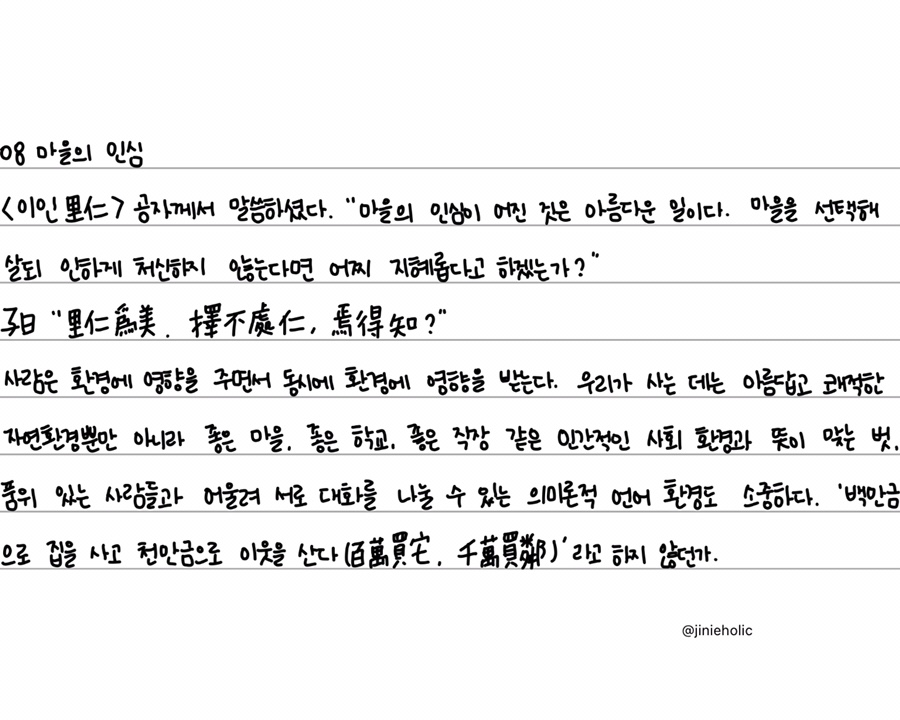 08 마을의 인심
<이인 里仁> 공자께서 말씀하셨다. "마을의 인심이 어진 것은 아름다운 일이다. 마을을 선택해
살되 인하게 처신하지 않는다면 어찌 지혜롭다고 하겠는가?"
子曰 "里仁爲美. 擇不處仁, 焉得知?"
사람은 환경에 영향을 주면서 동시에 환경에 영향을 받는다. 우리가 사는 데는 아름답고 쾌적한
자연환경뿐만 아니라 좋은 마을, 좋은 학교, 좋은 직장 같은 인간적인 사회 환경과 뜻이 맞는 벗,
품위 있는 사람들과 어울려 서로 대화를 나눌 수 있는 의미론적 언어 환경도 소중하다. '백만금
으로 집을 사고 천만금으로 이웃을 산다(百萬買宅, 千萬買鄰)'라고 하지 않던가.
@jinieholic